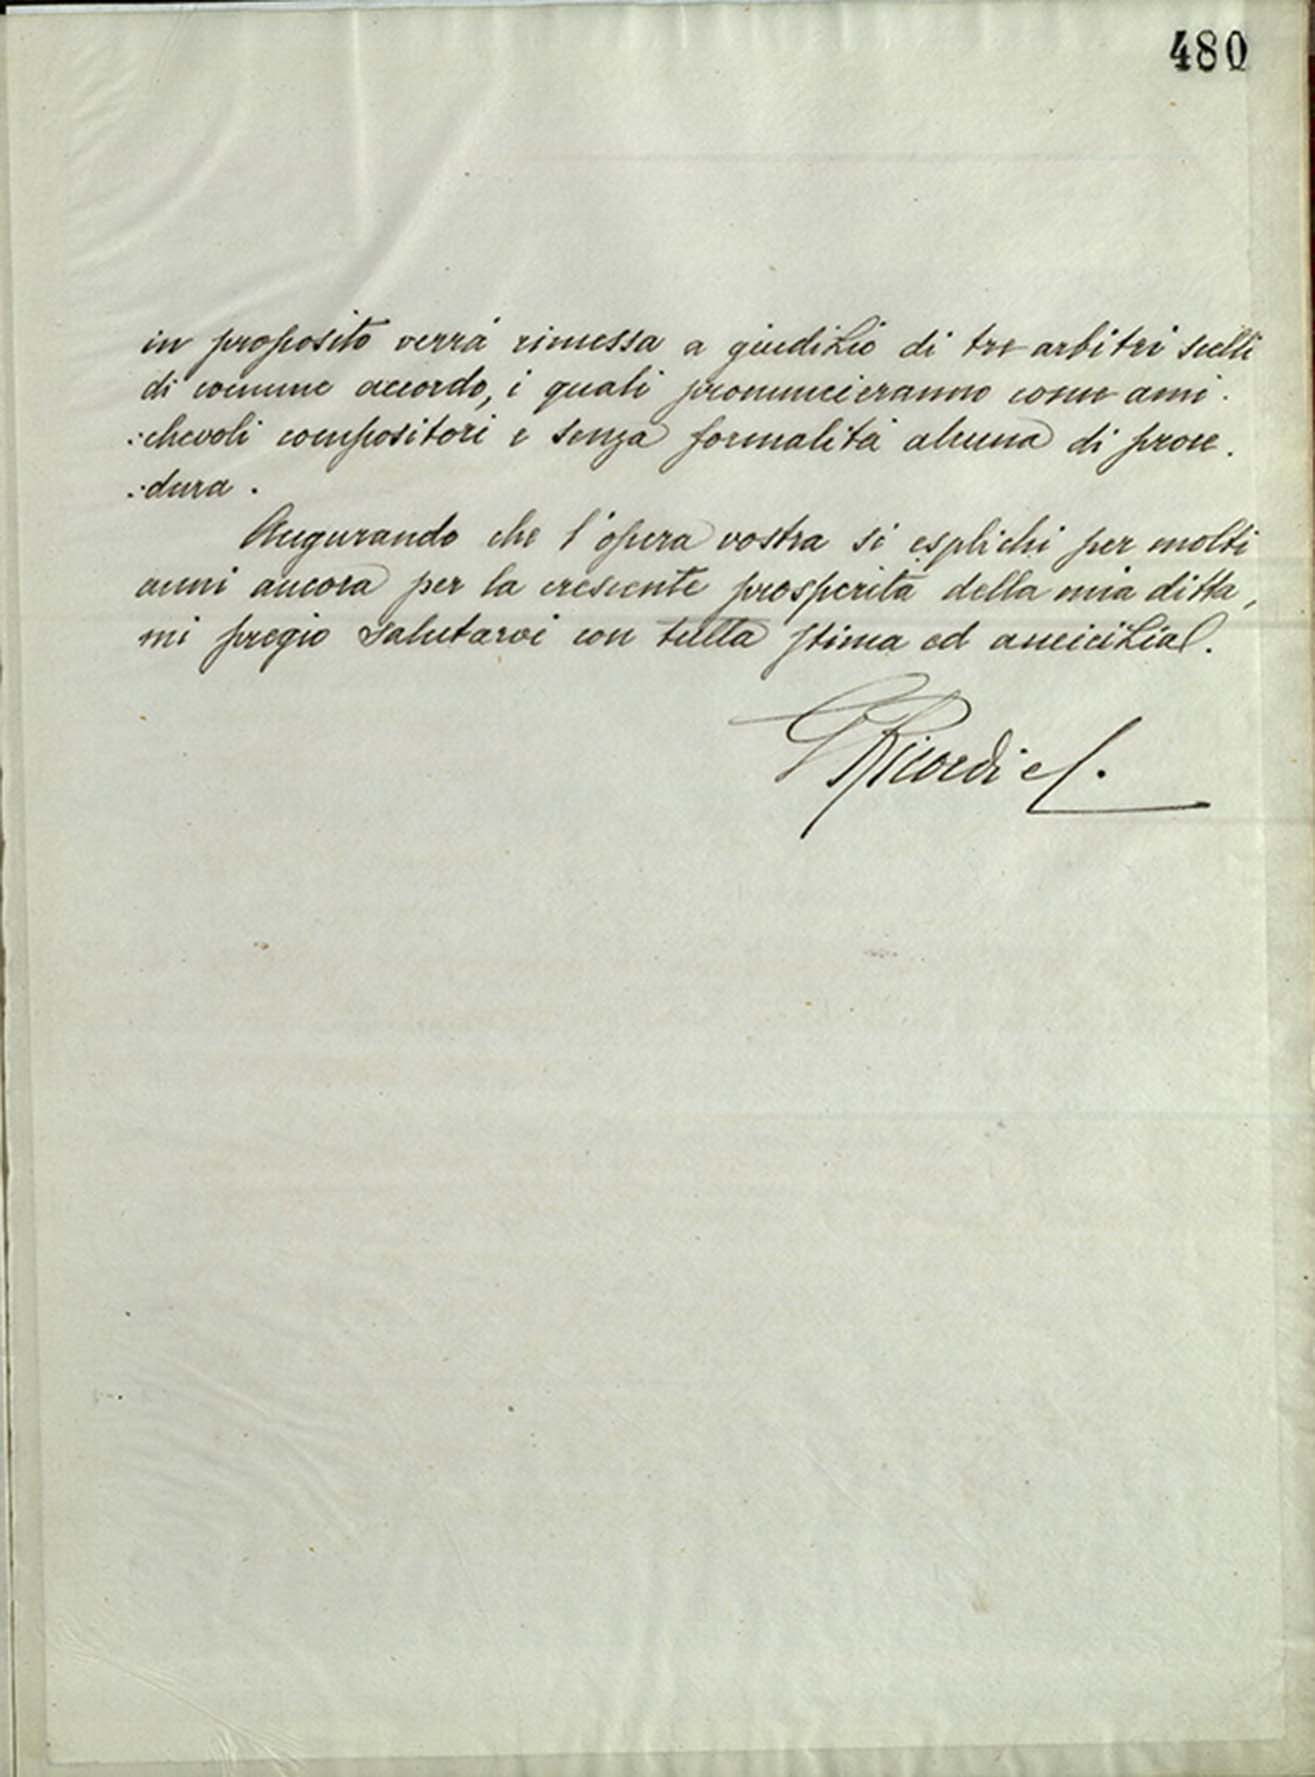 480
in proposito verrà rimessa a giudizio di tre arbitri scelti
di comune accordo, i quali pronuncieranno come ami-
:chevoli compositori e senza formalità alcuna di proce-
:dura.
Augurando che l'opera vostra si esplichi per molti
anni ancora per la crescente prosperità della mia ditta,
mi pregio salutarvi con tutta stima ed amicizia.
G Ricordi e C.